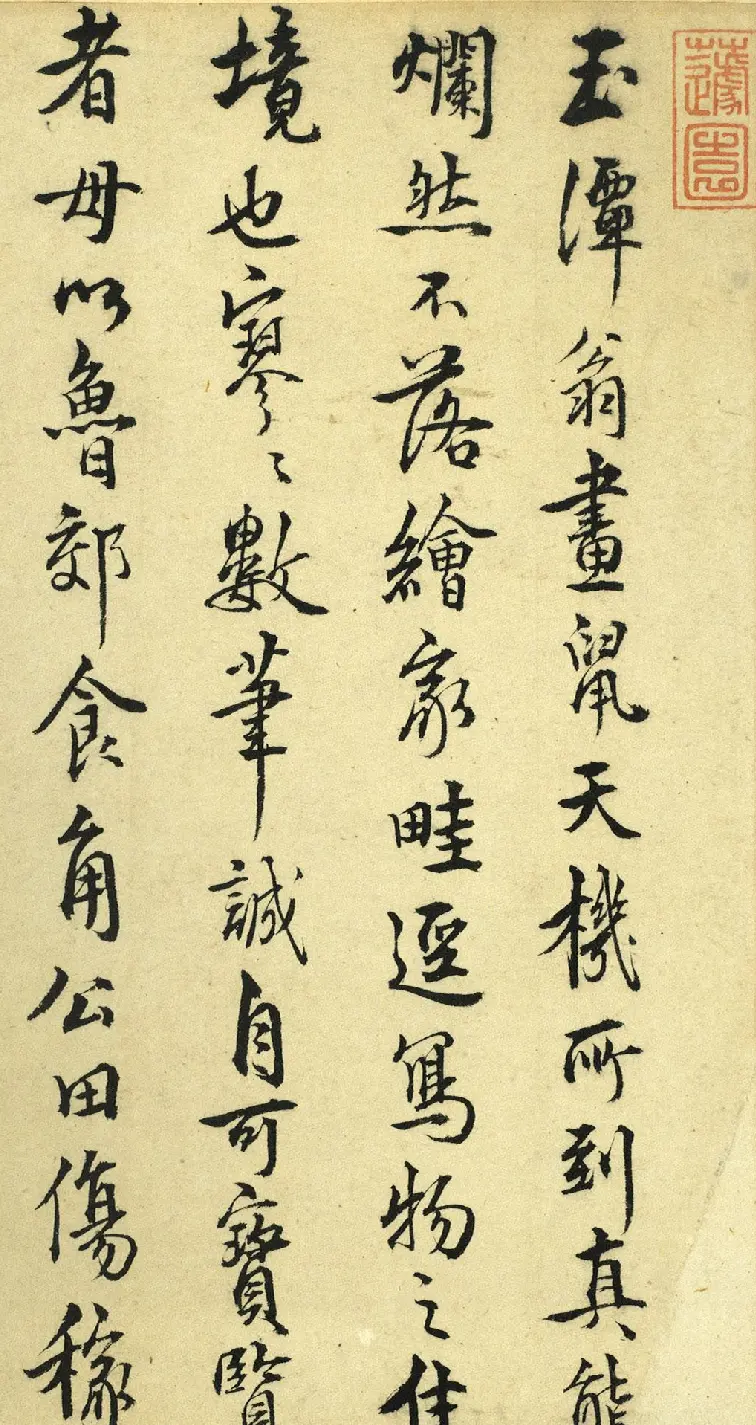 玉潭翁畫鼠天機所到真態
爛然不落繪家畦逕寫物之佳
境也寥〻數筆誠自可寶覽
者毋以魯郊食角公田傷稼